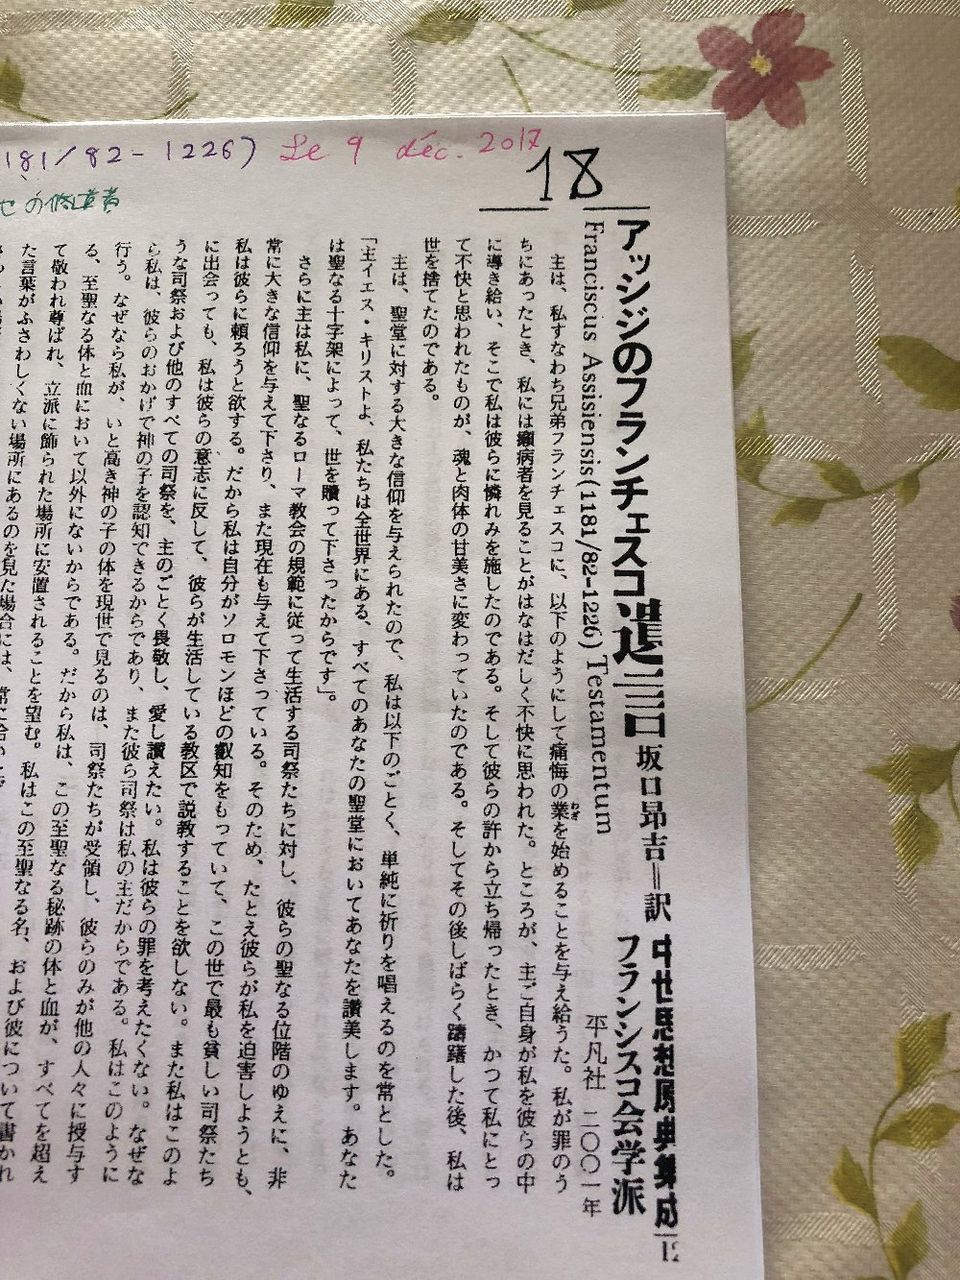 181/82-1226) Le 9 déc. 2017
18
せの修道者
中世思想原典集成 12
フランシスコ会学派
アッシジのフランチェスコ 遺言 坂口昂吉＝訳
平凡社 二〇〇一年
Franciscus Assisiensis (1181/82-1226) Testamentum
主は、私すなわち兄弟フランチェスコに、以下のようにして痛悔の業を始めることを与え給うた。私が罪のう
わざ
ちにあったとき、私には癩病者を見ることがはなはだしく不快に思われた。ところが、主ご自身が私を彼らの中
に導き給い、そこで私は彼らに憐れみを施したのである。そして彼らの許から立ち帰ったとき、かつて私にとっ
て不快と思われたものが、魂と肉体の甘美さに変わっていたのである。そしてその後しばらく躊躇した後、私は
世を捨てたのである。
主は、聖堂に対する大きな信仰を与えられたので、私は以下のごとく、単純に祈りを唱えるのを常とした。
「主イエス・キリストよ、私たちは全世界にある、すべてのあなたの聖堂においてあなたを讃美します。あなた
は聖なる十字架によって、世を贖って下さったからです」。
さらに主は私に、聖なるローマ教会の規範に従って生活する司祭たちに対し、彼らの聖なる位階のゆえに、非
常に大きな信仰を与えて下さり、また現在も与えて下さっている。そのため、たとえ彼らが私を迫害しようとも、
私は彼らに頼ろうと欲する。だから私は自分がソロモンほどの叡知をもっていて、この世で最も貧しい司祭たち
に出会っても、私は彼らの意志に反して、彼らが生活している教区で説教することを欲しない。また私はこのよ
うな司祭および他のすべての司祭を、主のごとく畏敬し、愛し讃えたい。私は彼らの罪を考えたくない。なぜな
ら私は、彼らのおかげで神の子を認知できるからであり、また彼ら司祭は私の主だからである。私はこのように
行う。なぜなら私が、いと高き神の子の体を現世で見るのは、司祭たちが受領し、彼らのみが他の人々に授与す
る、至聖なる体と血において以外にないからである。だから私は、この至聖なる秘跡の体と血が、すべてを超え
て敬われ尊ばれ、立派に飾られた場所に安置されることを望む。私はこの至聖なる名、および彼について書かれ
た言葉がふさわしくない場所にあるのを見た場合には、常に